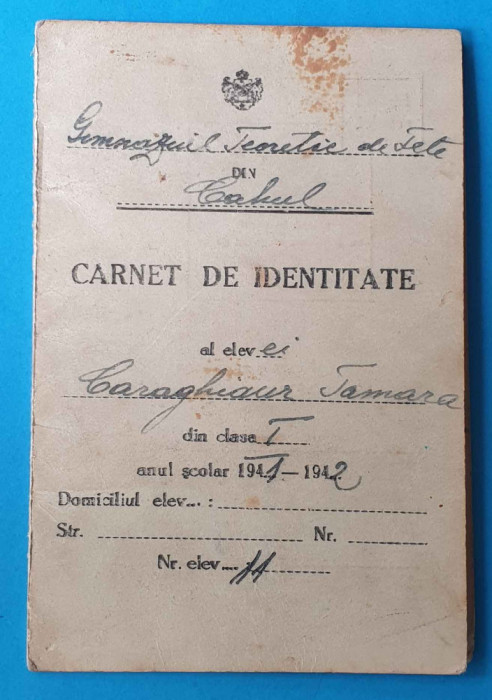 Gimnaziul Teoretic de Fete
DIN
Cahul
CARNET DE IDENTITATE
al elevei
Caraghiaur Tamara
din clasa I
anul școlar 1941—1942
Domiciliul elev... :
Str. Nr.
Nr. elev.... 11